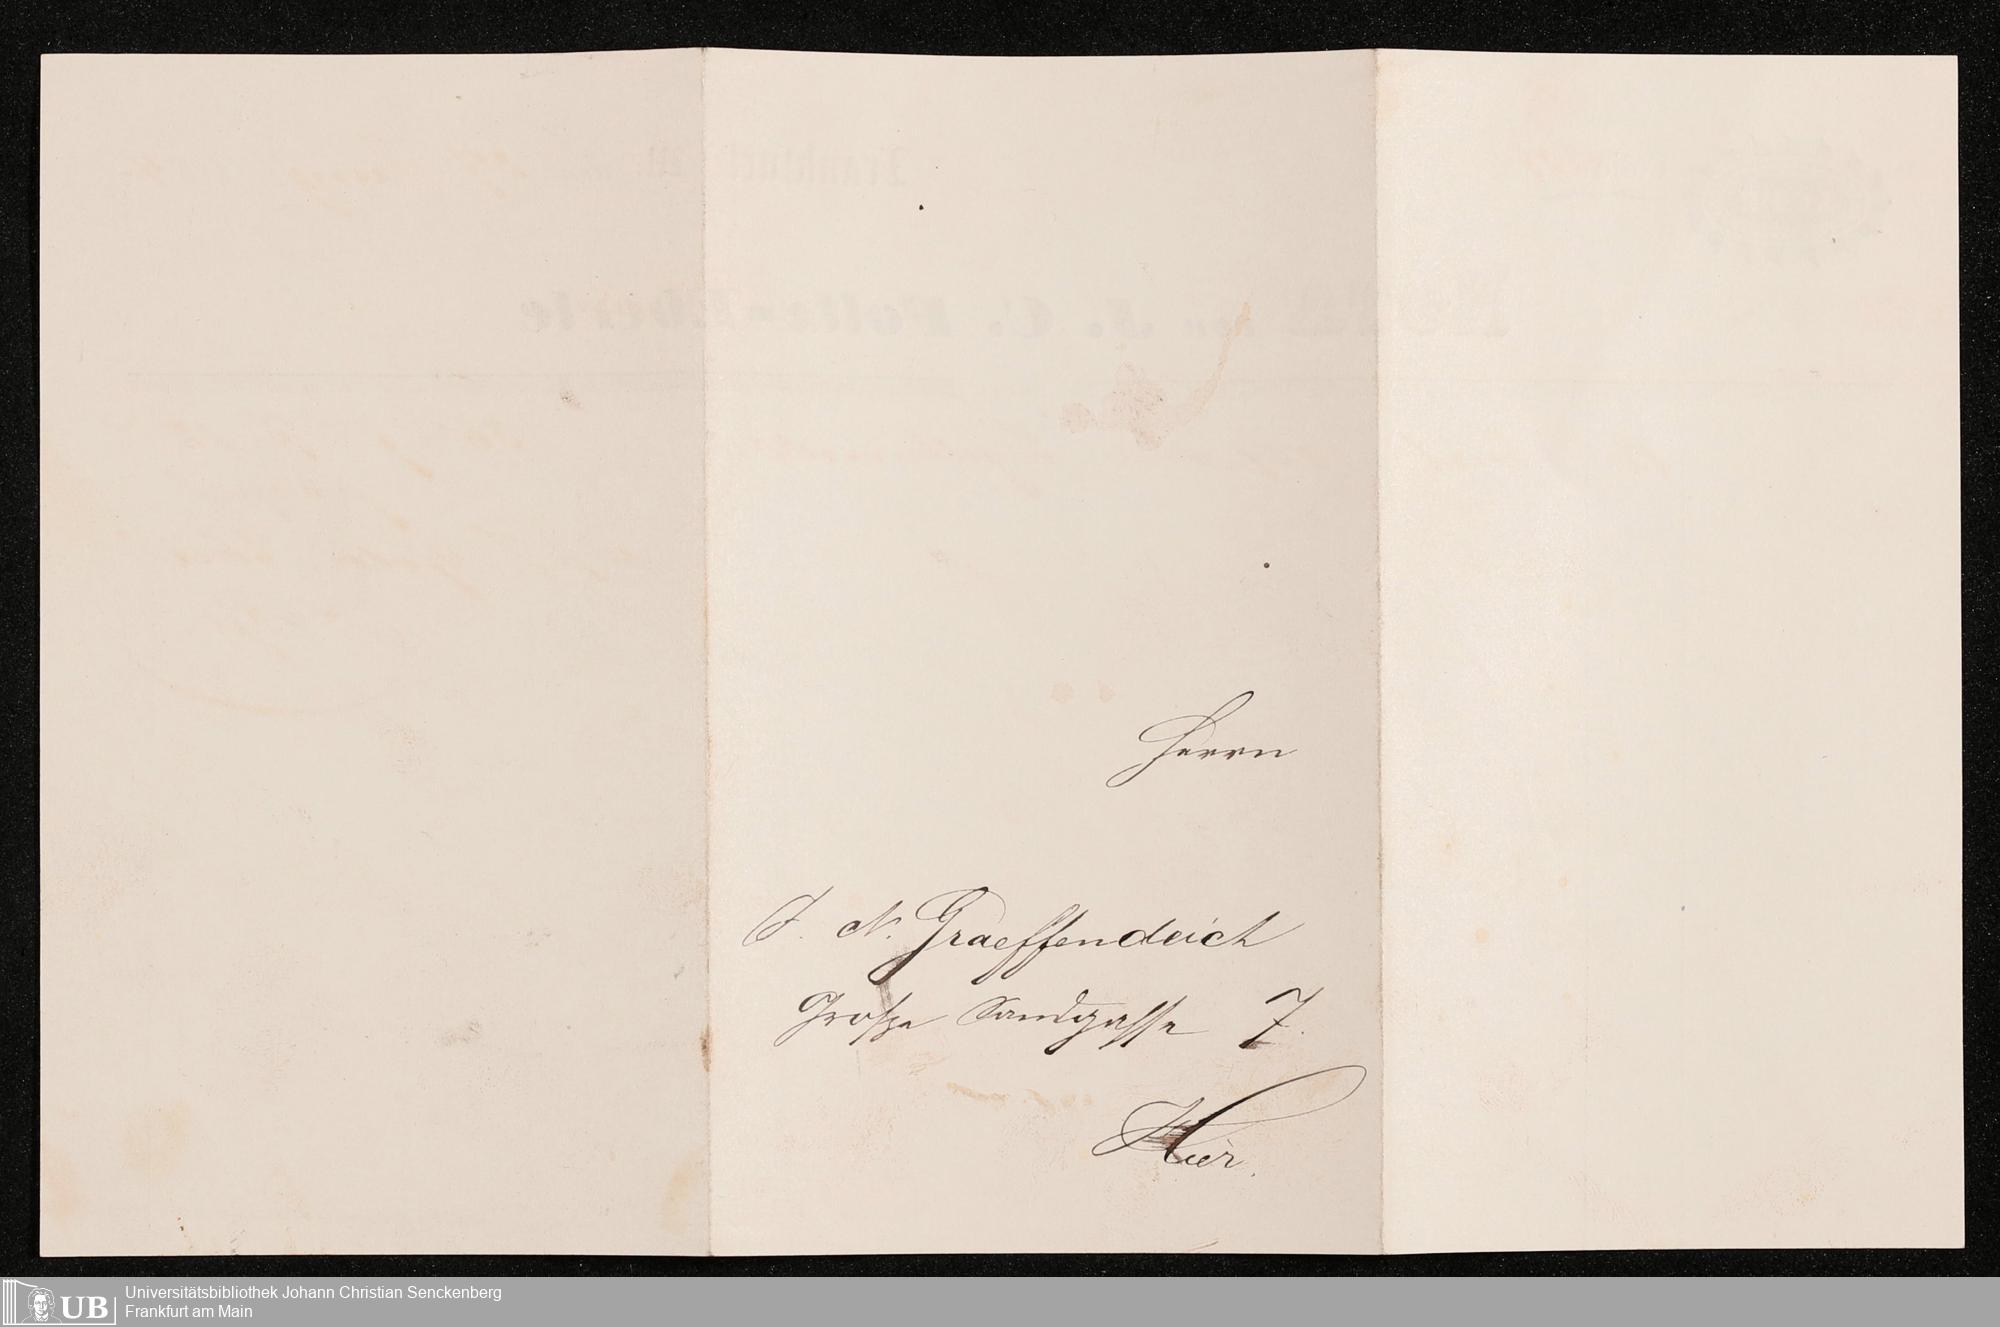 Herrn
J. N. Graeffendeich
Große Sandgasse 7.
Hier.
UB
Universitätsbibliothek Johann Christian Senckenberg
Frankfurt am Main